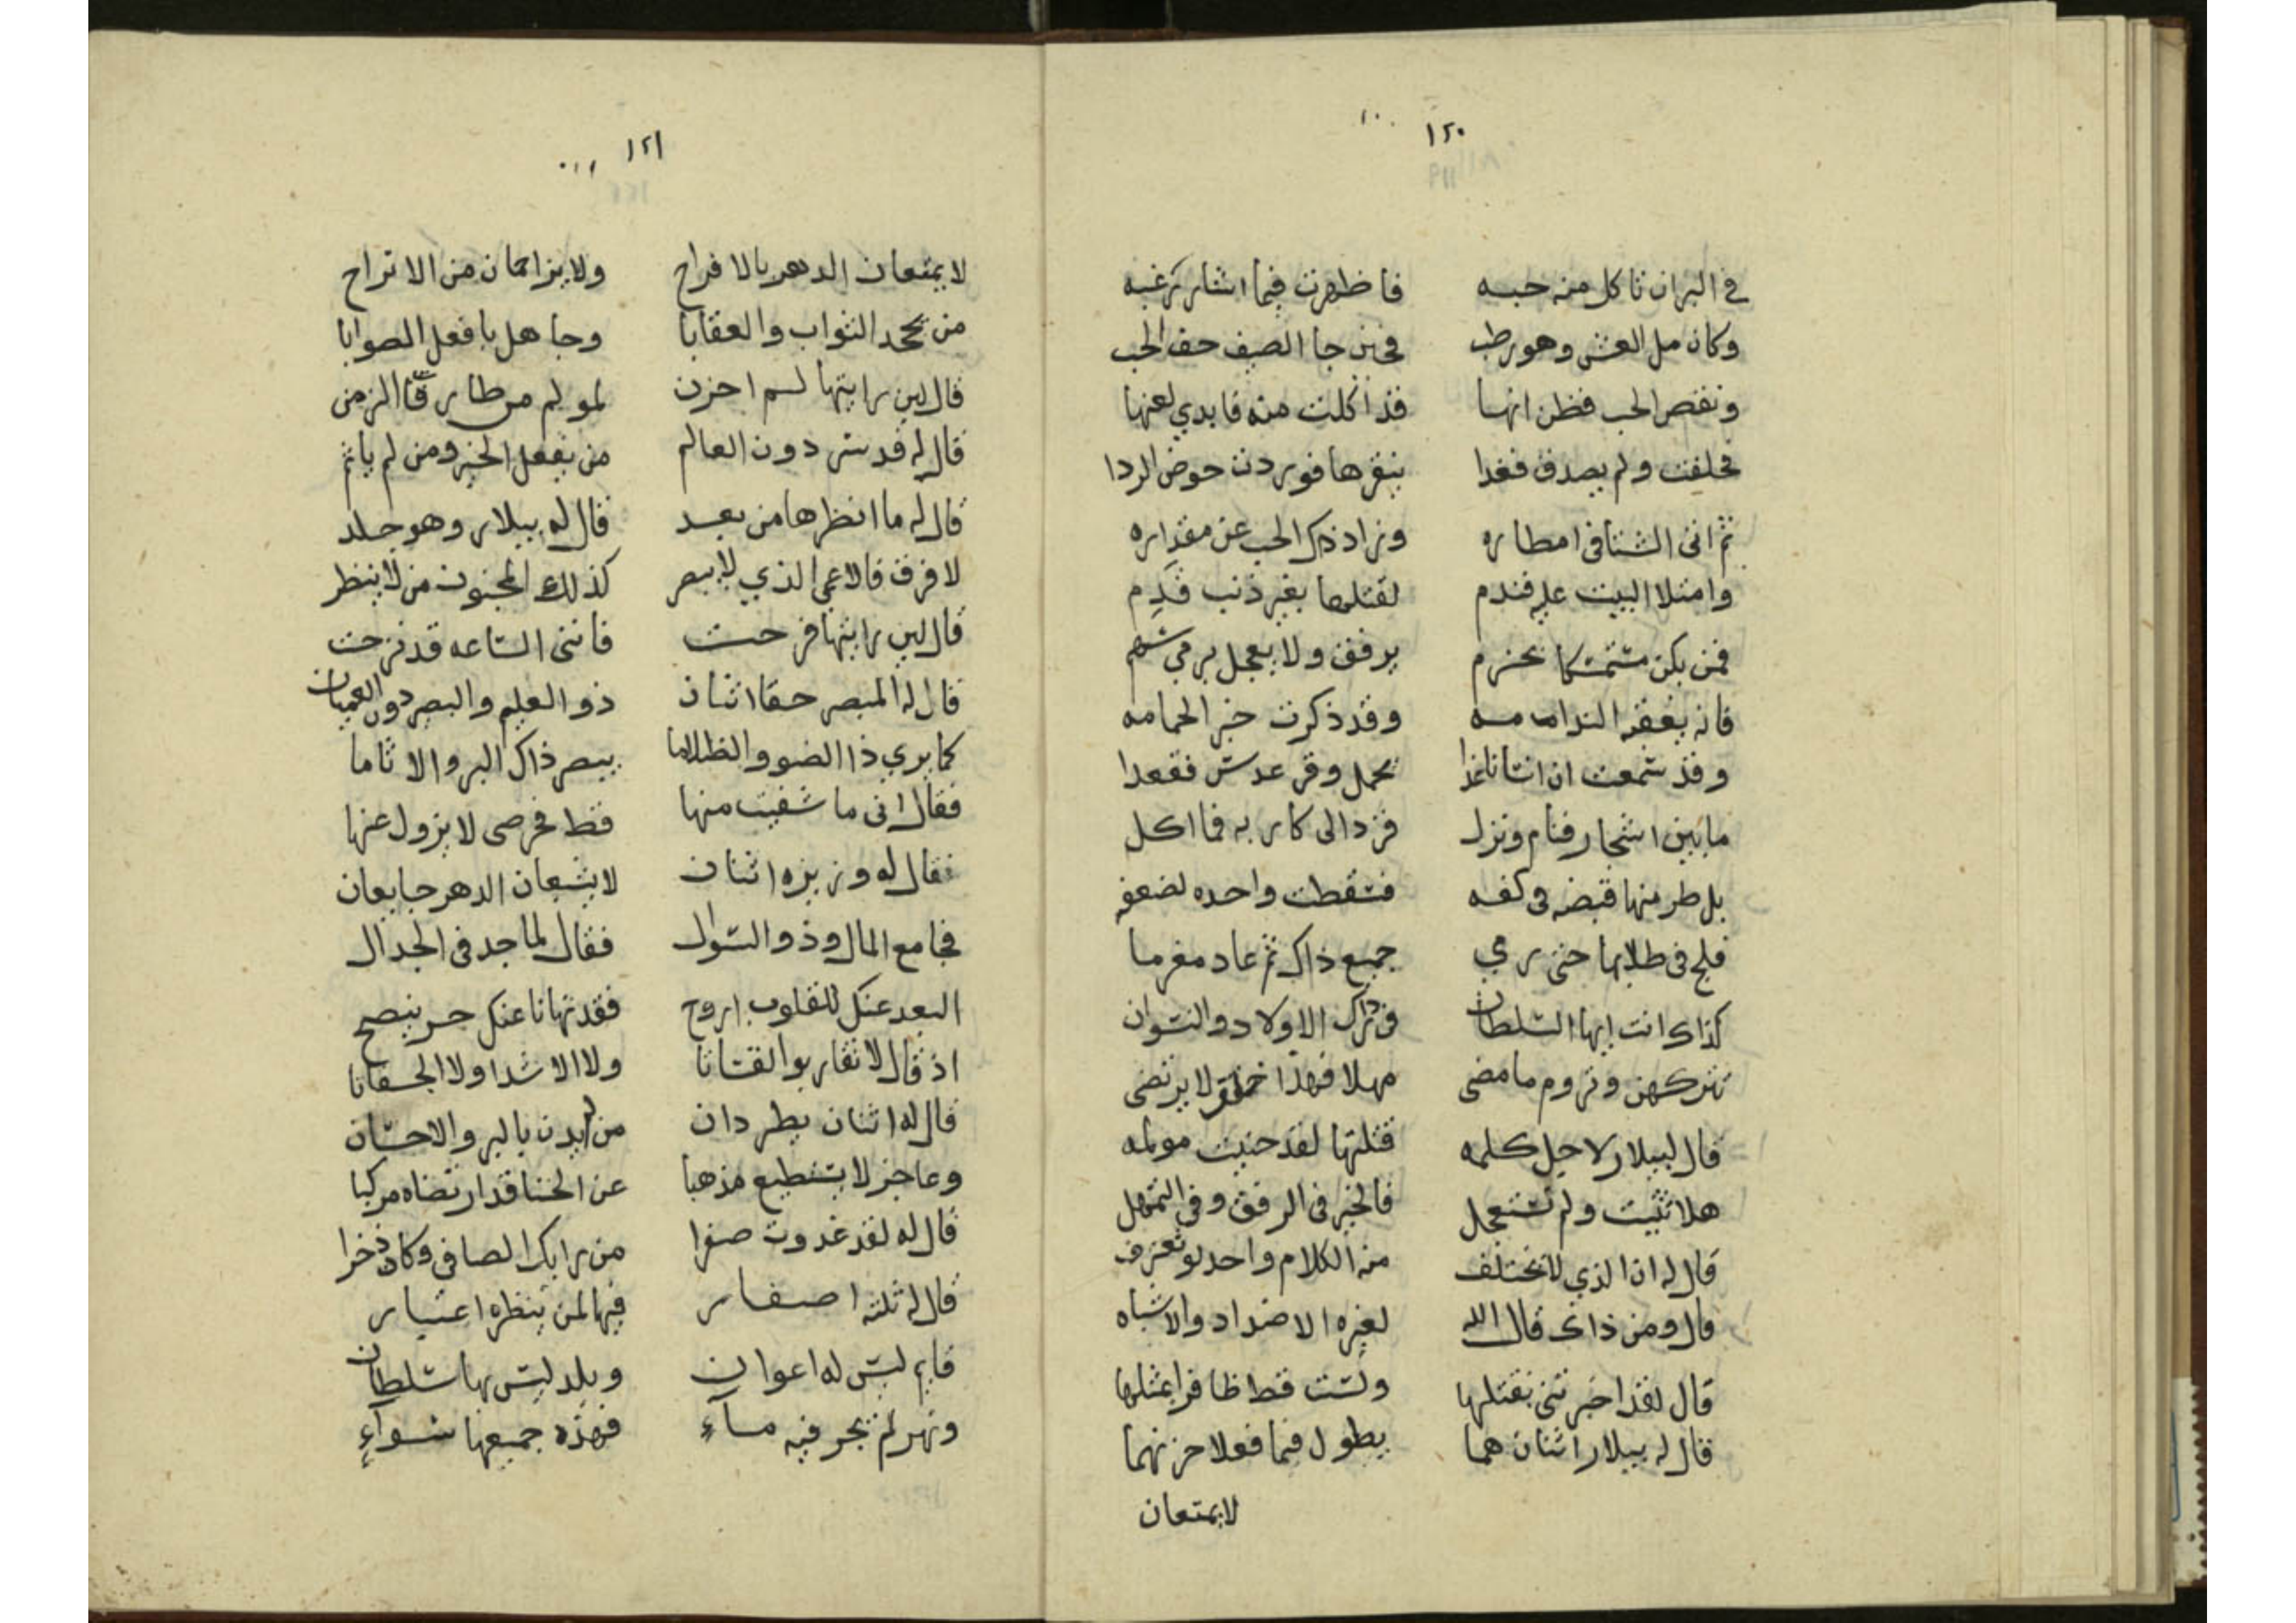 ١٢٠
في البر ان تاكل منه حبه فاظهرت فيما اشار رغبه
وكان مل العش وهو رطب فحين جا الصيف جف الحب
ونقص الحب فظن انها قد اكلت منه فابدي لعنها
فحلفت ولم يصدق فغدا ينقرها فوردت حوض الردا
ثم اتى الشتا في امطاره وزاد ذاك الحب عن مقداره
وامتلا البيت عليه فندم لقتلها بغير ذنب قدم
فمن يكن متمسكا بحزم يرفق ولا يعجل برمي سهم
فانه يعقبه الندامه وقد ذكرت خبر الحمامه
وقد سمعت ان انسانا غدا يحمل وقر عدس فقعدا
ما بين اشجار فنام ونزل قرد الى كاربه فما اكل
بل طر منها قبضه في كفه فسقطت واحده لضعفه
فلج في طلابها حتى رمي جميع ذاك ثم عاد مغرما
كذاك انت ايها السلطان في ترك الاولاد والنسوان
تتركهن وتروم ما مضى مهلا فهذا خلق لا يرتضى
قال لبيلار لاجل كلمه قتلتها لقد جنيت مولمه
هلا تثبت ولم تستعجل فالخير في الرفق وفي التمهل
قال له ان الذي لا يختلف منه الكلام واحد لو تعترف
قال ومن ذاك قال الله لغيره الاضداد والاشباه
قال لقد اخبرتني بقتلها ولست قط ظافرا بمثلها
قال له بيلار اثنان هما يطول فيما فعلا حزنهما
لايمتعان
١٢١
لا يمتعان الدهر بالافراح ولا يزاحمان من الاتراح
من يجحد الثواب والعقابا وجاهل ما فعل الصوابا
قال لين رايتها لم احزن لمولم من طارقات الزمن
قال له قد سر دون العالم من يفعل الخير ومن لم ياثم
قال له ما انظرها من بعد قال له بيلار وهو جلد
لا فرق فالاعمى الذي لا يبصر كذلك المجنون من لا ينظر
قال لين رايتها فرحت فانني الساعه قد نزحت
قال له المبصر حقا اثنان ذو العلم والبصر دون العميان
كما يري ذا الضو والظلاما يبصر ذاك البر والاثاما
فقال اني ما شفيت منها قط فحرصي لا يزول عنها
فقال له وزيره اثنان لا يشبعان الدهر جايعان
فجامع المال وذو السوال فقال لما جد في الجدال
البعد عنك للقلوب اروح فقد نهانا عنك حر ينصح
اذ قال لا تقاربوا القتانا ولا الاشدا ولا الجفانا
قال له اثنان يطردان من لم يدن بالبر والاحسان
وعاجز لا يستطيع مذهبا عن الخنا قد ارتضاه مركبا
قال له لقد غدوت صفرا من رايك الصافي وكان ذخرا
قال له ثلثه اصفار فيها لمن ينظره اعتبار
قايم ليس له اعوان وبلد ليس بها سلطان
ونهر لم يجر فيه ماء فهذه جميعها سواء